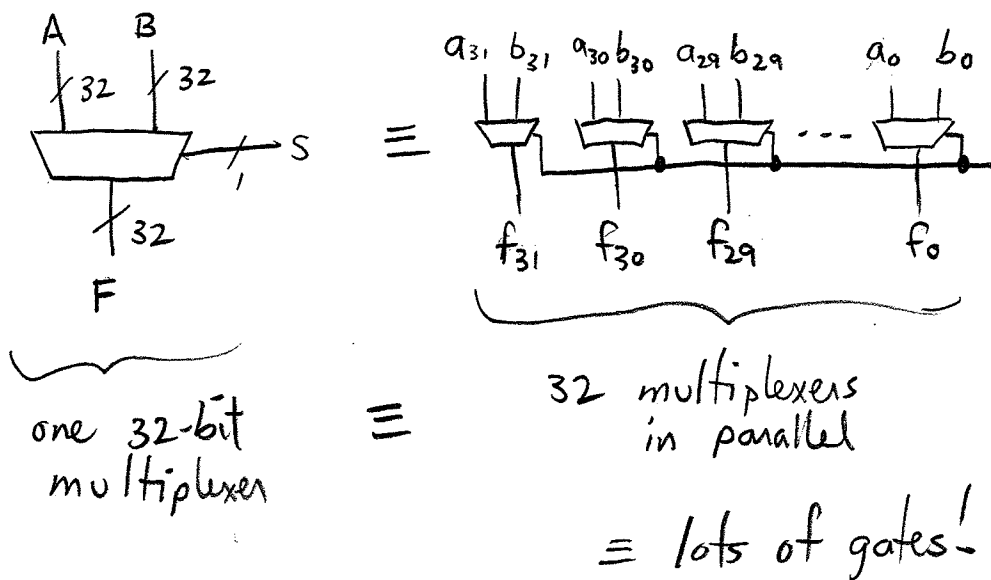 A B
32 32
S
1
32
F
≡
a31 b31 a30 b30 a29 b29 ... a0 b0
f31 f30 f29 f0
one 32-bit
multiplexer
≡
32 multiplexers
in parallel
≡ lots of gates!